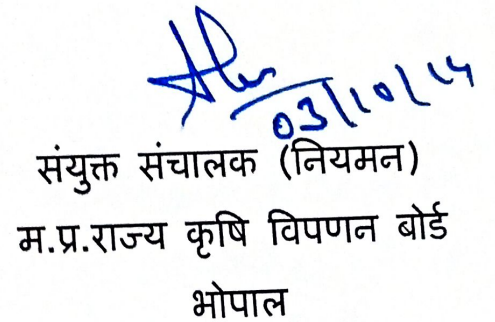 03/10/14
संयुक्त संचालक (नियमन)
म.प्र.राज्य कृषि विपणन बोर्ड
भोपाल